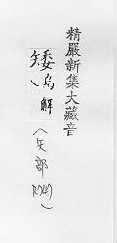 精嚴新集大藏音
矮烏解
(矢部